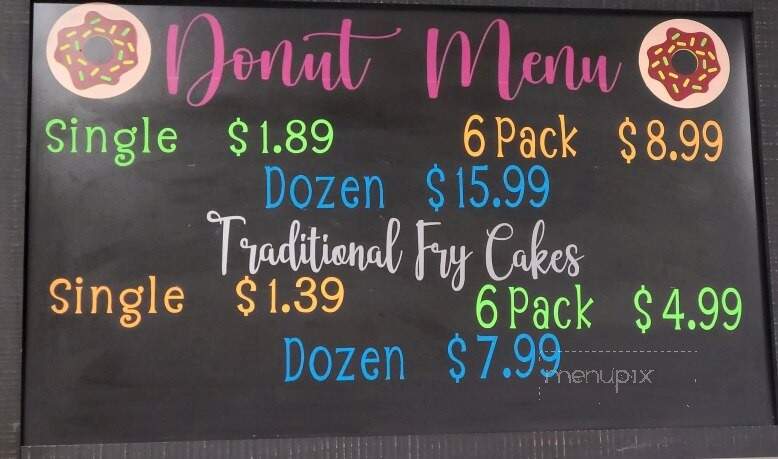 Donut Menu
Single $1.89 6 Pack $8.99
Dozen $15.99
Traditional Fry Cakes
Single $1.39 6 Pack $4.99
Dozen $7.99
menupix